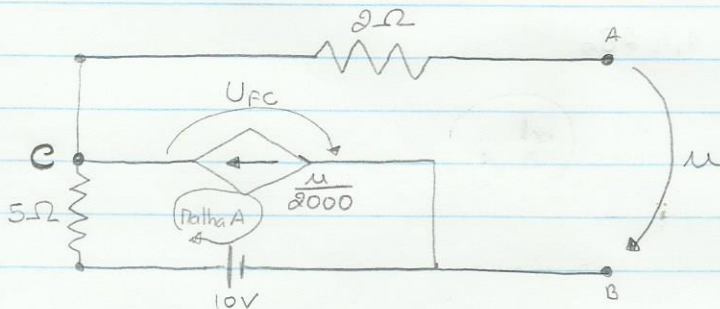 2Ω
A
U_FC
C
u
u/2000
5Ω
Malha A
10V
B